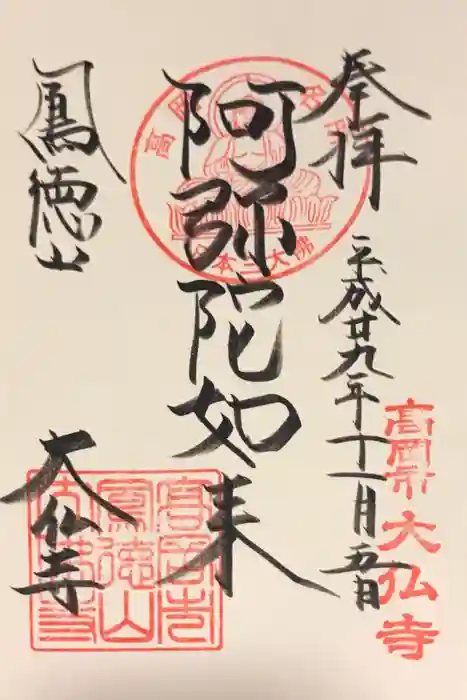 奉拝
平成廿九年十一月五日
高岡市大仏寺
阿弥陀如来
日本三大佛
高岡市
鳳徳山
大佛寺
鳳徳山
大仏寺